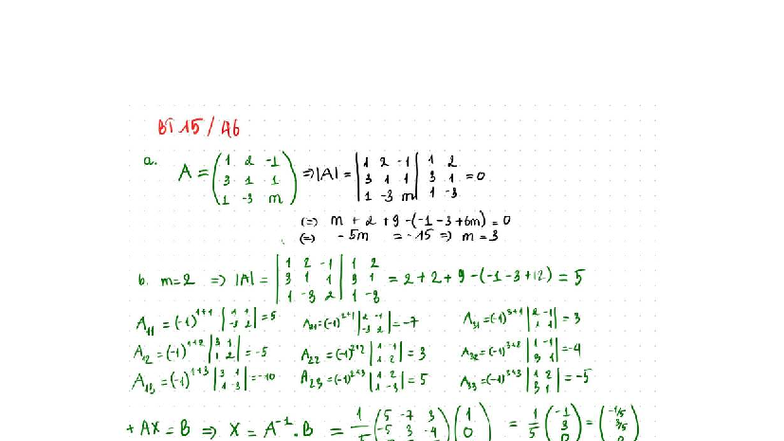 BT 15 / A6
a. A = (1 2 -1; 3 1 1; 1 -3 m) => |A| = |1 2 -1; 3 1 1; 1 -3 m| 1 2; 3 1; 1 -3 = 0
(=) m + 2 + 9 - (-1 - 3 + 6m) = 0
(=) -5m = -15 => m = 3
b. m = 2 => |A| = |1 2 -1; 3 1 1; 1 -3 2| 1 2; 3 1; 1 -3 = 2 + 2 + 9 - (-1 - 3 + 12) = 5
A11 = (-1)^1+1 |1 1; -3 2| = 5 A21 = (-1)^2+1 |2 -1; -3 2| = -7 A31 = (-1)^3+1 |2 -1; 1 1| = 3
A12 = (-1)^1+2 |3 1; 1 2| = -5 A22 = (-1)^2+2 |1 -1; 1 2| = 3 A32 = (-1)^3+2 |1 -1; 3 1| = -4
A13 = (-1)^1+3 |3 1; 1 -3| = -10 A23 = (-1)^2+3 |1 2; 1 -3| = 5 A33 = (-1)^3+3 |1 2; 3 1| = -5
+ AX = B => X = A^-1 . B = 1/5 (5 -7 3; -5 3 -4 (1; 0 = 1/5 (-1; 3 = (-1/5; 3/5